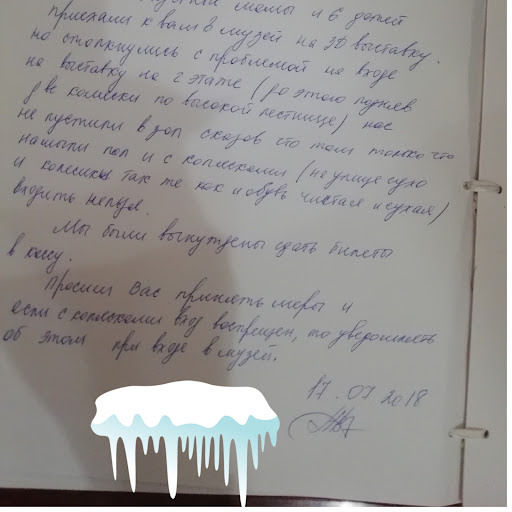 мамы и 6 детей
приехали к вам в музей на 3D выставку.
но столкнулись с проблемой на входе
на выставку на 2 этаже (до этого подняв
две коляски по высокой лестнице) нас
не пустили в зал сказав что там только что
намыли пол и с колясками (на улице сухо
и колесики так же как и обувь чистая и сухая)
входить нельзя.
Мы были вынуждены сдать билеты
в кассу.
Просим Вас принять меры и
если с колясками вход воспрещен, то уведомлять
об этом при входе в музей.
17.07 2018